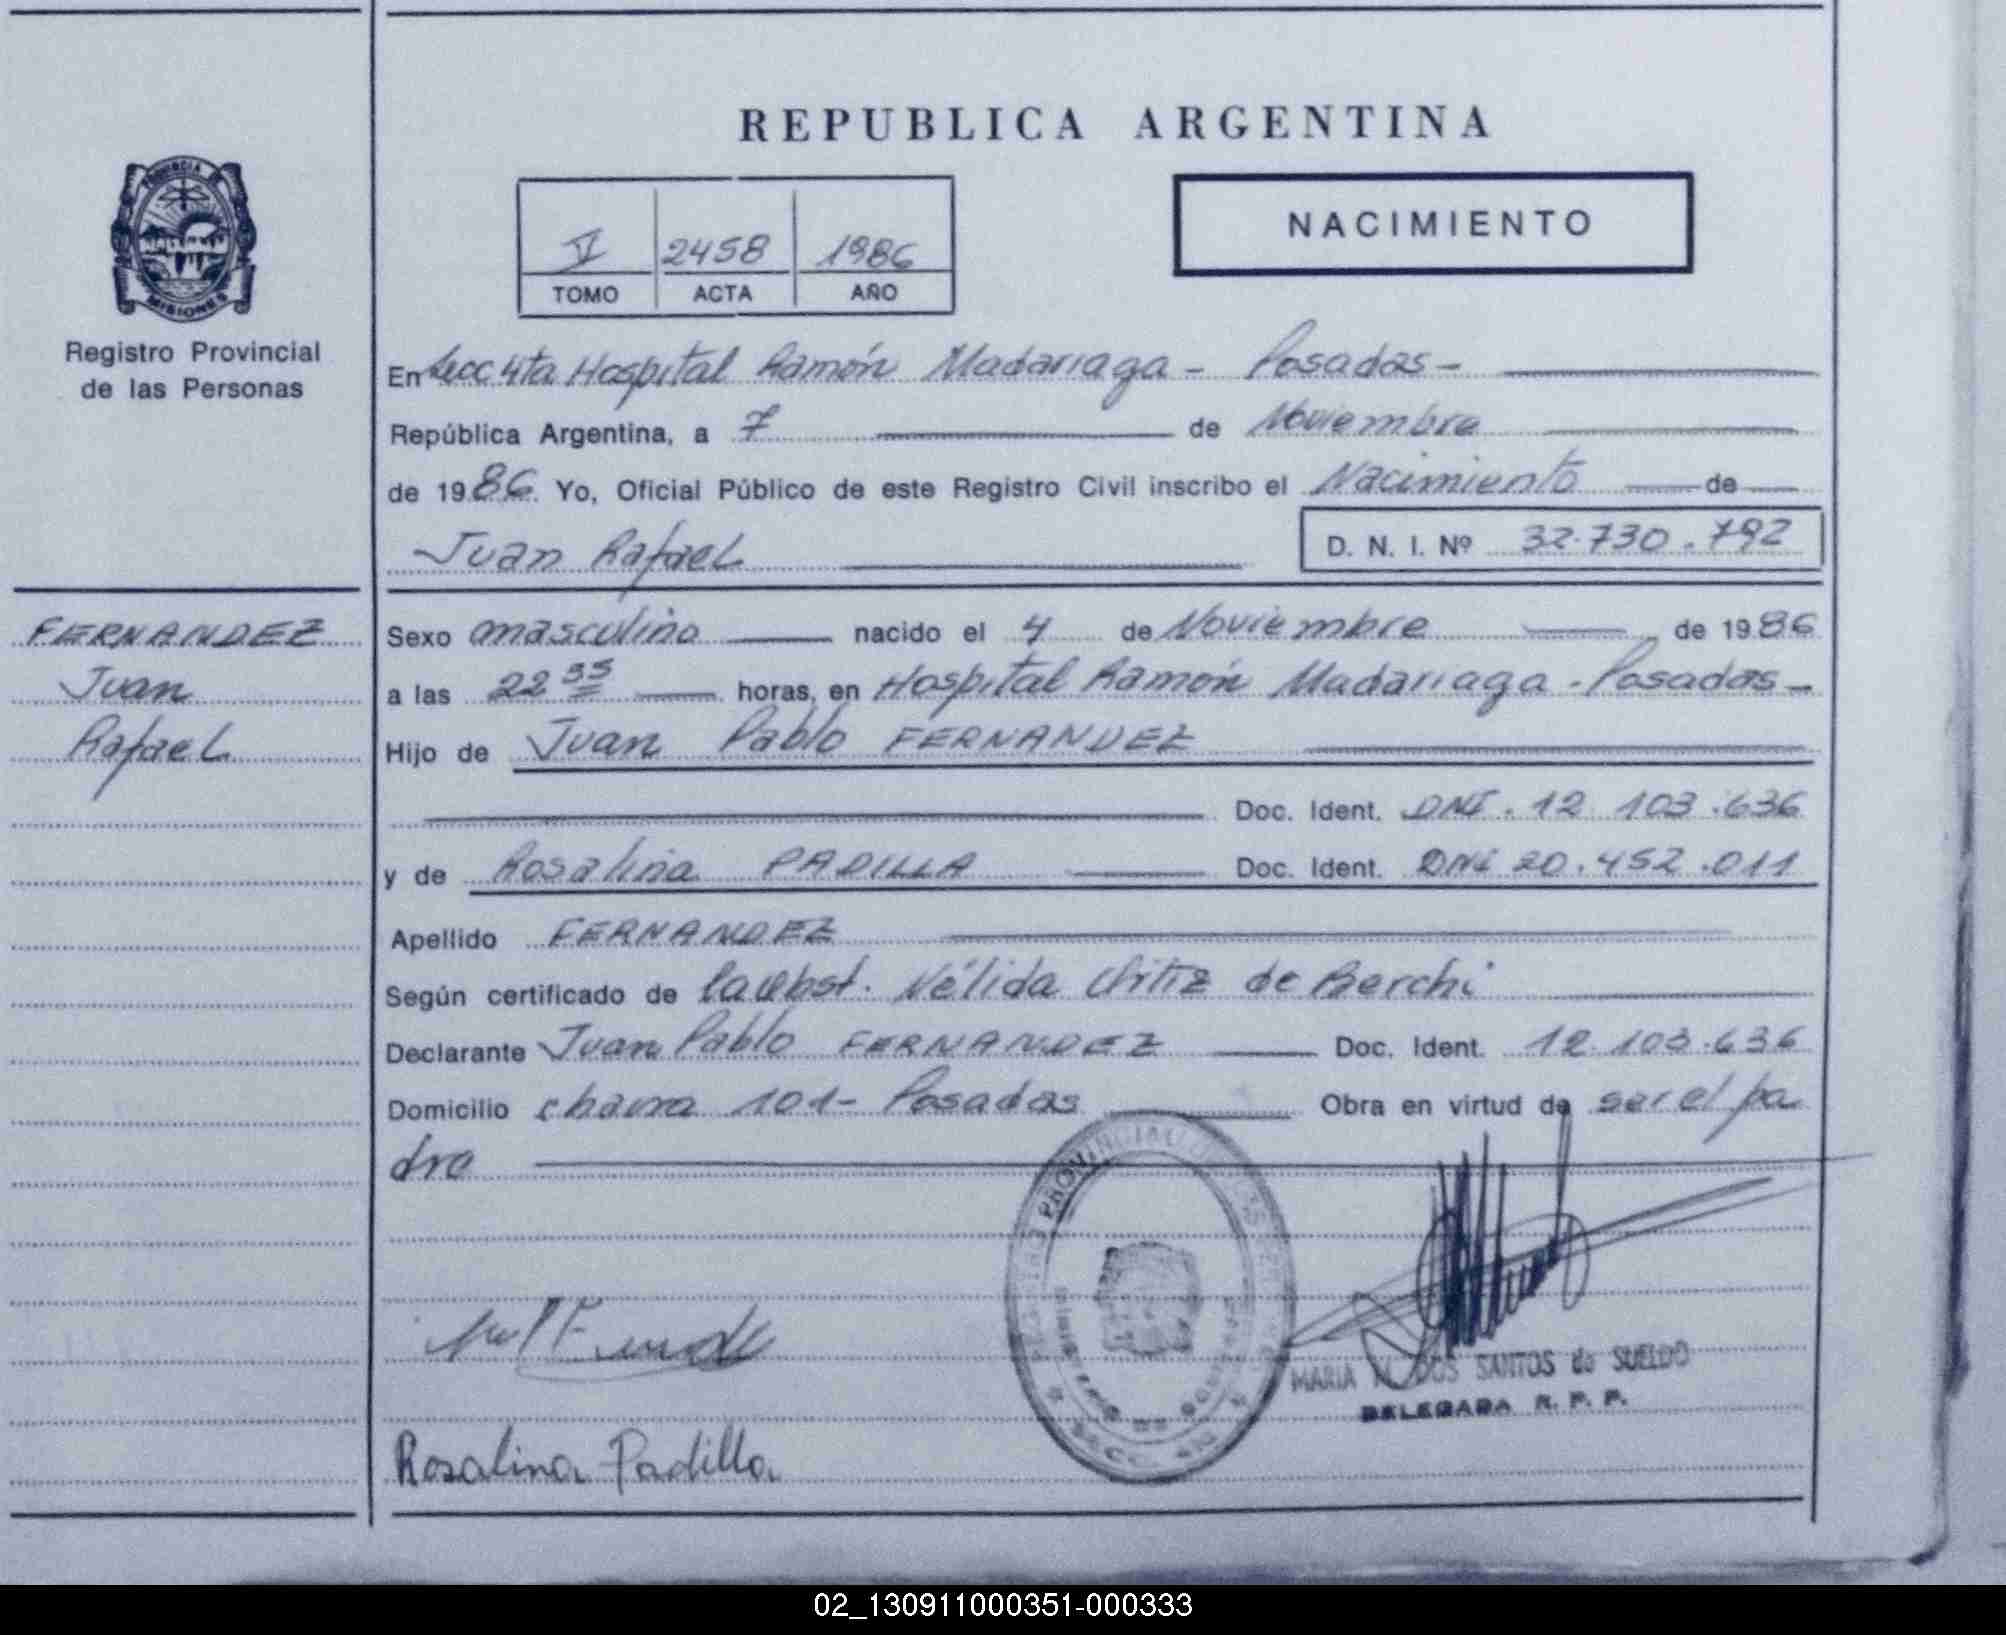 REPUBLICA ARGENTINA
NACIMIENTO
V 2458 1986
TOMO ACTA AÑO
PROVINCIA DE
MISIONES
Registro Provincial
de las Personas
En Secc 4ta Hospital Ramón Madariaga - Posadas -
República Argentina, a 7 de Noviembre
de 1986. Yo, Oficial Público de este Registro Civil inscribo el Nacimiento de
Juan Rafael D. N. I. Nº 32.730.792
FERNANDEZ
Juan
Rafael
Sexo masculino nacido el 4 de Noviembre de 1986
a las 22 35 horas, en Hospital Ramón Madariaga - Posadas -
Hijo de Juan Pablo FERNANDEZ
Doc. Ident. DNI. 12 103.636
y de Rosalina PADILLA Doc. Ident. DNI 20.452.011
Apellido FERNANDEZ
Según certificado de la Obst. Nélida de Berchi
Declarante Juan Pablo FERNANDEZ Doc. Ident. 12.103.636
Domicilio chacra 101- Posadas Obra en virtud de ser el pa
dre
PROVINCIAL
MARIA M. DOS SANTOS de SUELDO
DELEGADA R. P. P.
Rosalina Padilla
02_130911000351-000333